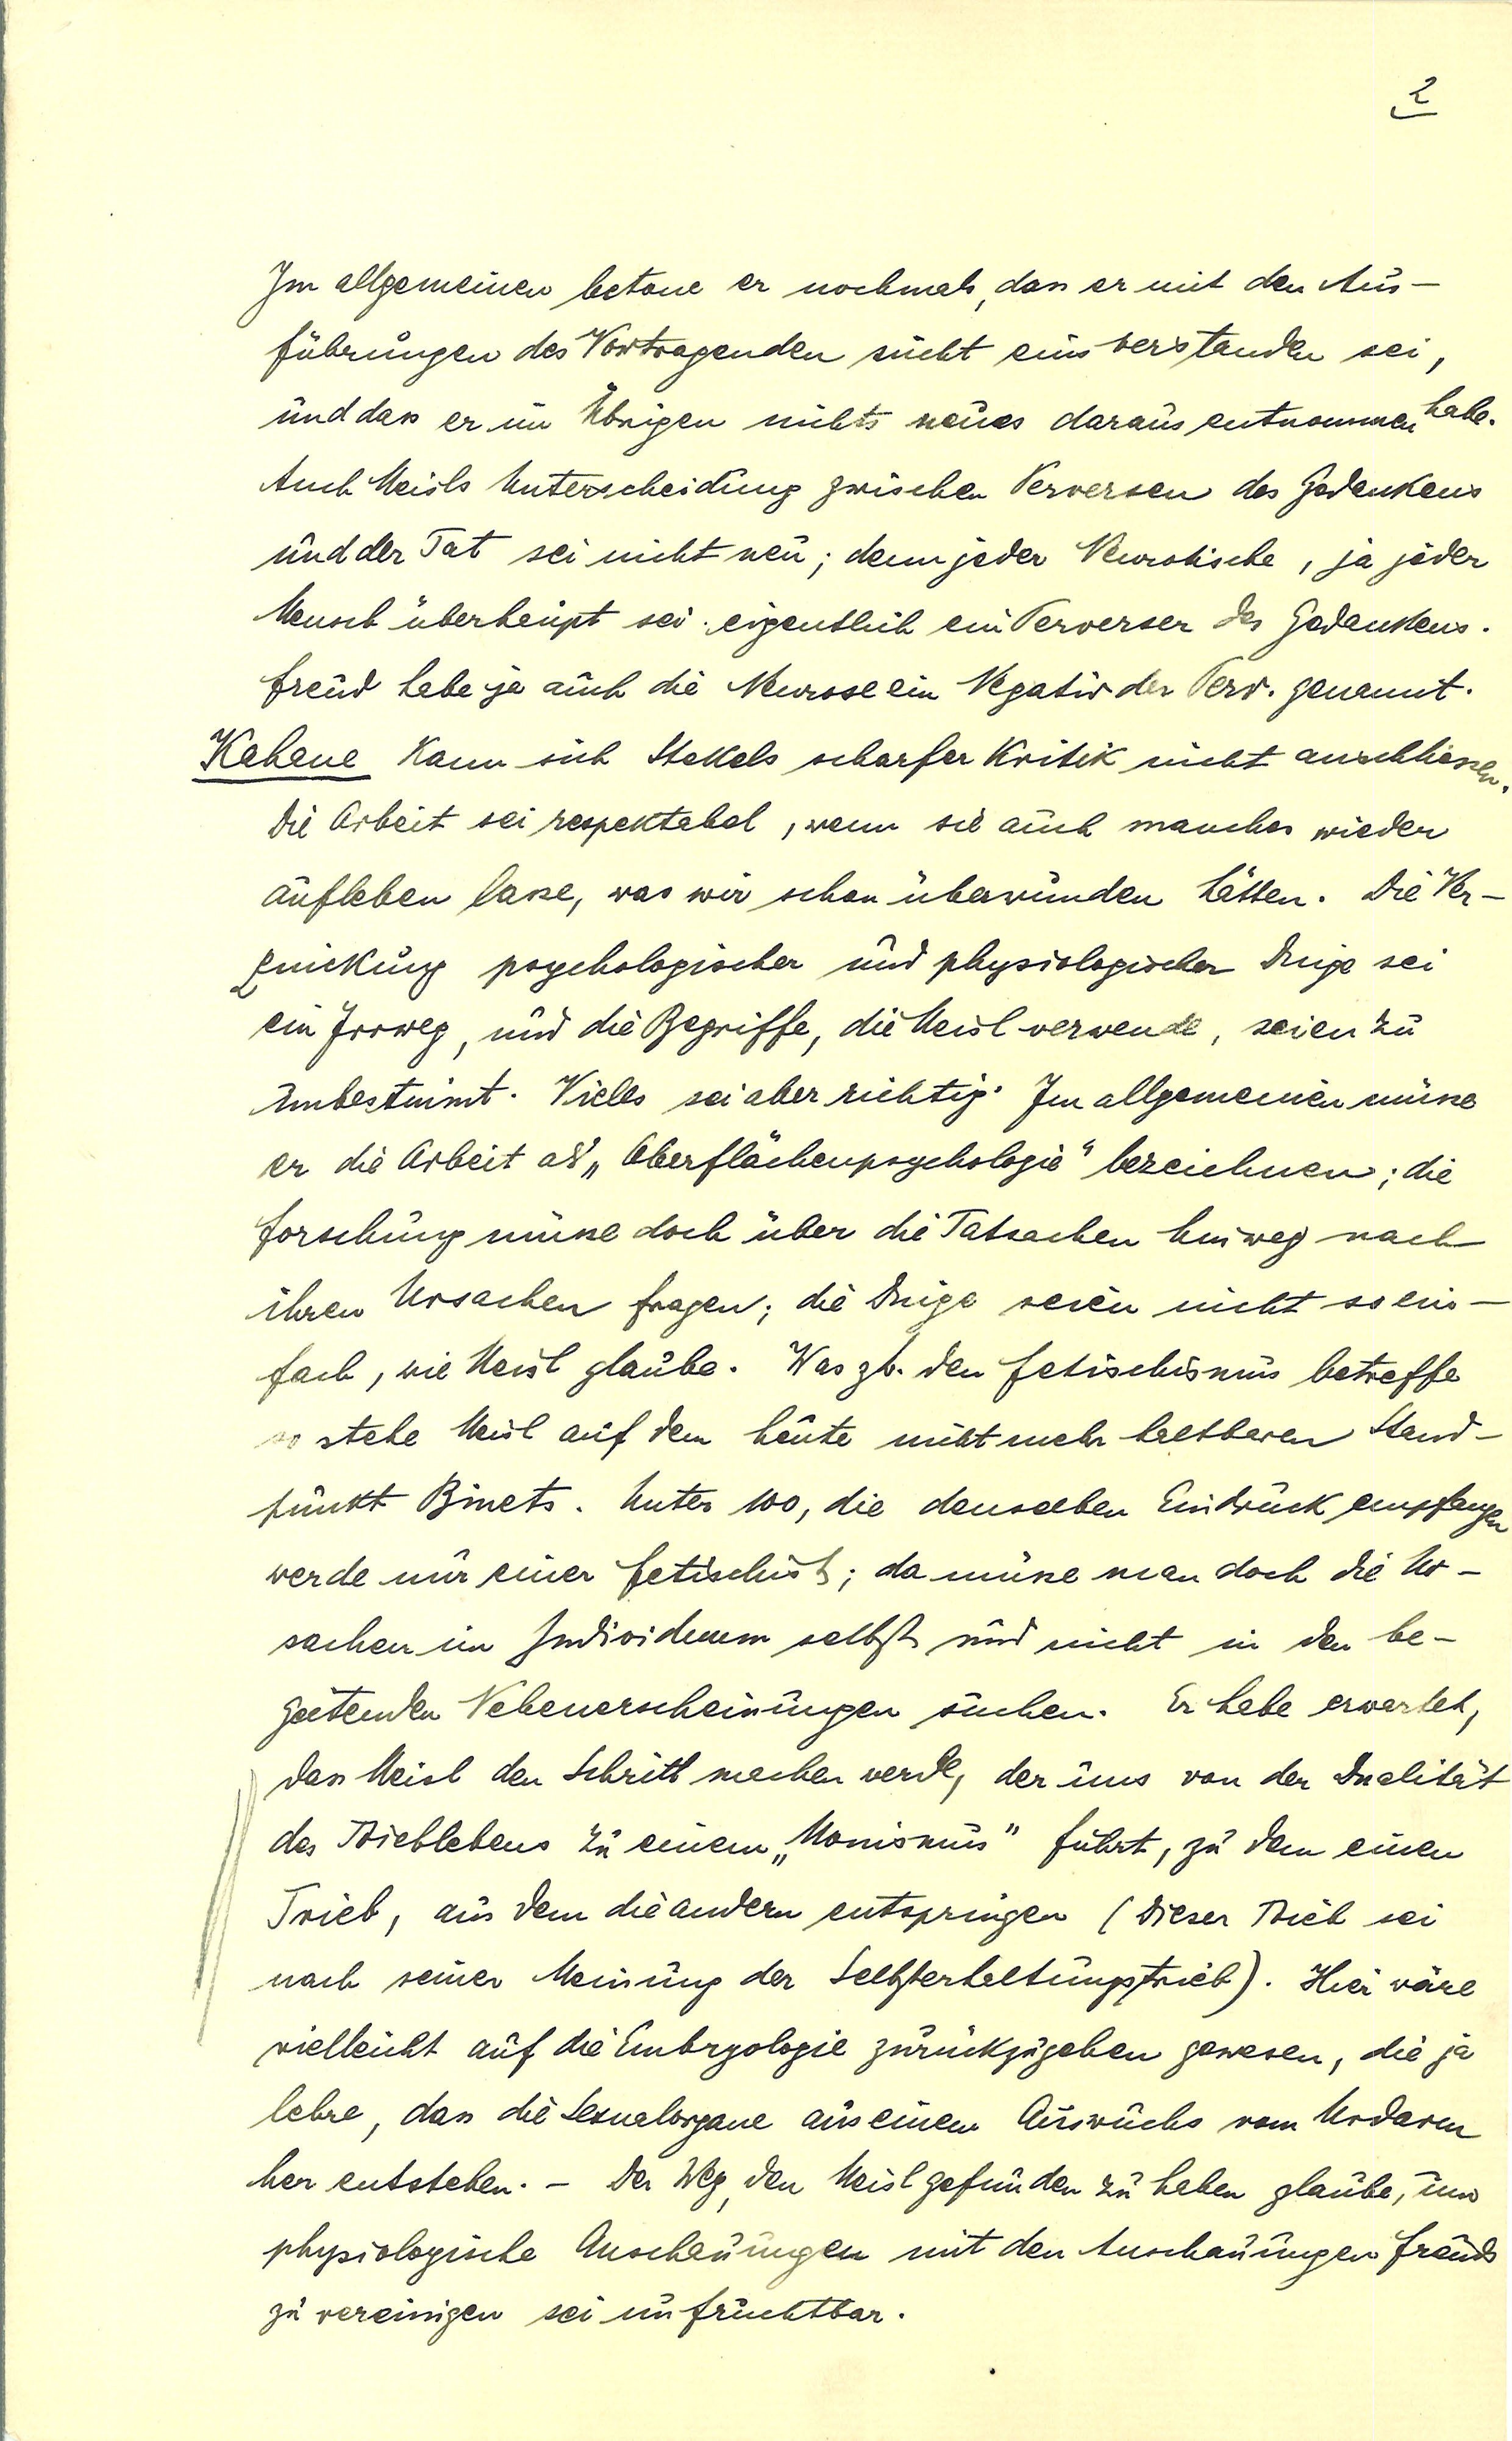 2
Im allgemeinen betone er nochmals, dass er mit den Aus-
führungen des Vortragenden nicht einverstanden sei,
und dass er im Übrigen nichts neues daraus entnommen habe.
Auch Meisls Unterscheidung zwischen Perversen des Gedankens
und der Tat sei nicht neu; denn jeder Neurotische, ja jeder
Mensch überhaupt sei eigentlich ein Perverser des Gedankens.
Freud habe ja auch die Neurose ein Negativ der Perv. genannt.
Kahane kann sich Stekels scharfer Kritik nicht anschliessen.
Die Arbeit sei respektabel, wenn sie auch manches wieder
aufleben lasse, was wir schon überwunden hätten. Die Ver-
quickung psychologischer und physiologischer Dinge sei
ein Irrweg, und die Begriffe, die Meisl verwende, seien zu
unbestimmt. Vieles sei aber richtig. Im allgemeinen müsse
er die Arbeit als „Oberflächenpsychologie" bezeichnen; die
Forschung müsse doch über die Tatsachen hinweg nach
ihren Ursachen fragen; die Dinge seien nicht so ein-
fach, wie Meisl glaube. Was zb. den Fetischismus betreffe
so stehe Meisl auf dem heute nicht mehr haltbaren Stand-
punkt Binets. Unter 100, die denselben Eindruck empfangen
werde nur einer Fetischist; da müsse man doch die Ur-
sachen im Individuum selbst und nicht in den be-
gleitenden Nebenerscheinungen suchen. Er habe erwartet,
dass Meisl den Schritt machen werde, der uns von der Dualität
des Trieblebens zu einem „Monismus" führt, zu dem einen
Trieb, aus dem die andern entspringen (dieser Trieb sei
nach seiner Meinung der Selbsterhaltungstrieb). Hier wäre
vielleicht auf die Embryologie zurückzugehen gewesen, die ja
lehre, dass die Sexualorgane aus einem Auswuchs vom Urdarm
her entstehen. - Der Weg, den Meisl gefunden zu haben glaube, um
physiologische Anschauungen mit den Anschauungen Freuds
zu vereinigen sei unfruchtbar.